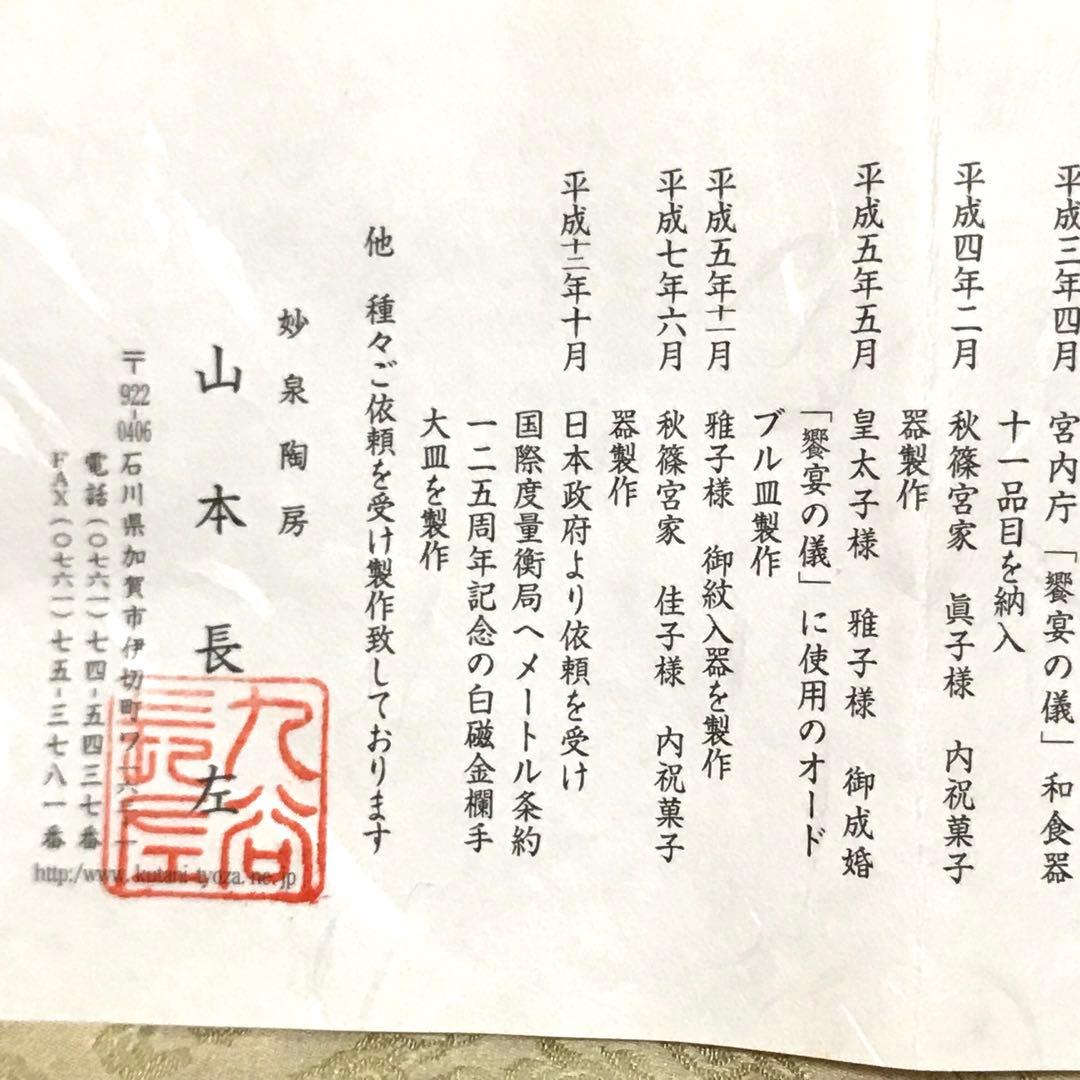 平成三年四月　宮内庁「饗宴の儀」和食器
十一品目を納入
平成四年二月　秋篠宮家　眞子様　内祝菓子
器製作
平成五年五月　皇太子様　雅子様　御成婚
「饗宴の儀」に使用のオード
ブル皿製作
平成五年十一月　雅子様　御紋入器を製作
平成七年六月　秋篠宮家　佳子様　内祝菓子
器製作
平成十二年十月　日本政府より依頼を受け
国際度量衡局へメートル条約
一二五周年記念の白磁金欄手
大皿を製作
他　種々ご依頼を受け製作致しております
妙泉陶房
山本長左
〒922-0406石川県加賀市伊切町ワ
電話(〇七六一)七四-五四三七番
FAX(〇七六一)七五-三七八一番
http://www.kutani-tyoza.ne.jp
九谷
長左